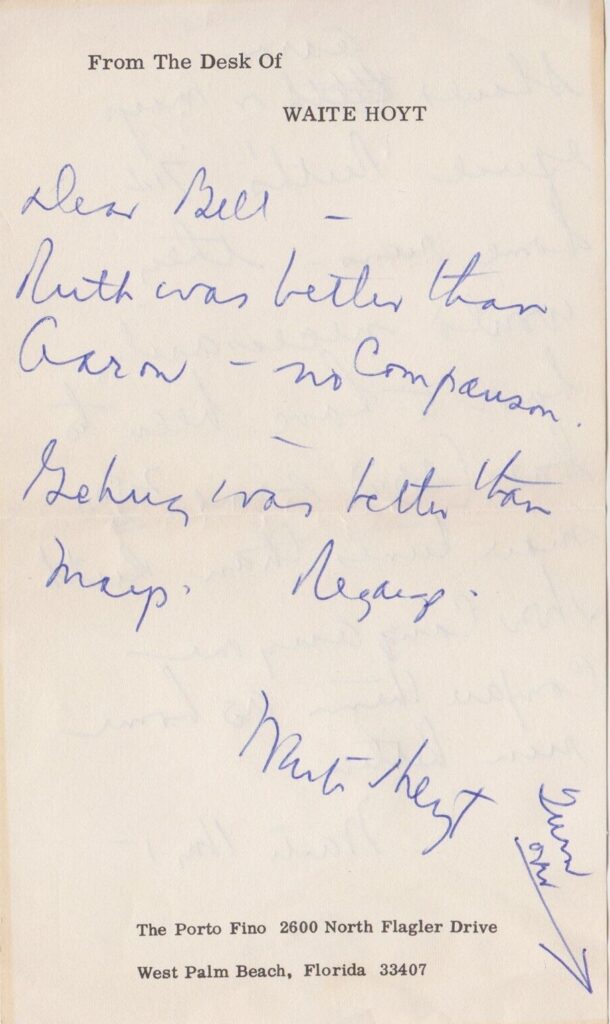 From The Desk Of
WAITE HOYT
Dear Bill —
Ruth was better than
Aaron — no Comparison.
—
Gehrig was better than
Mays. Regards.
Waite Hoyt
Turn
over
The Porto Fino 2600 North Flagler Drive
West Palm Beach, Florida 33407